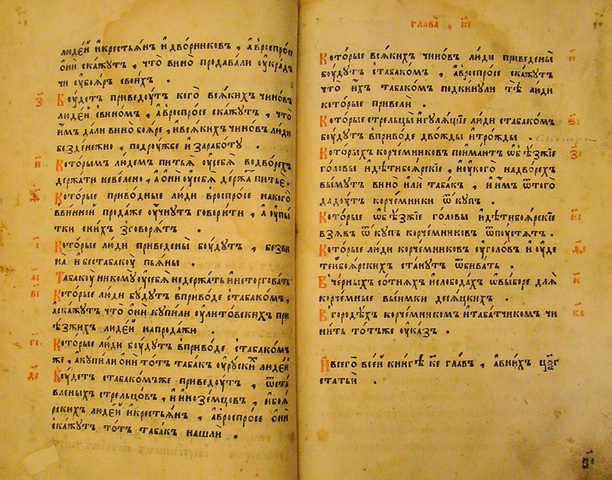 людей и крестьян и дворников , а в роспросе
они скажут , что вино продавали ухрадчи у бояр своих .
з Будет приведут кого всяких чинов
людей с вином , а в роспросе скажут , что
им дали вино бояре , и всяких чинов люди
безденежно , по дружбе и за работу .
и Которым людем питья у себя в дворех
держати не велено , а они у себя держат питье .
Которые приводные люди в роспросе на кого
в винной продаже учнут говорити , а с пытки с них зговорят .
і Которые люди приведены будут , без вина и без табаку пьяны .
аі Табаку никому у себя не держать и не торговать .
ві Которые люди будут в приводе с табаком ,
а скажут что они купили у литовских приезжих людей на продажю .
гі Которые люди будут в приводе с табаком
же , а купили они тот табак у руских людей
Будет с табаком же приведут ,
стрельцов , и иноземцов , и боярских людей и крестьян , а в роспросе они
скажут тот табак нашли .
глава , к҃е
Которые всяких чинов люди приведены
будут с табаком , а в роспросе скажут
что их табаком подкинули те люди
которые привели .
Которые стрельцы и гулящие люди с табаком
будут в приводе двожды и трожды .
Которых корчемников поймают объезжие
головы и дети боярские , и у кого на дворех
вымут вино или табак , и им с того
дадут корчемники откуп .
Которые объезжие головы и дети боярские
взяв откуп корчемников отпустят .
Которые люди корчемников у голов и у детей боярских станут отбивать .
В черных сотнях и слободах о выборе для
корчемные выимки десяцких .
В городех корчемником и табатчиком чинить тот же указ .
И всего в сей книге к҃е глав , а в них ц҃ѯз
статьи .